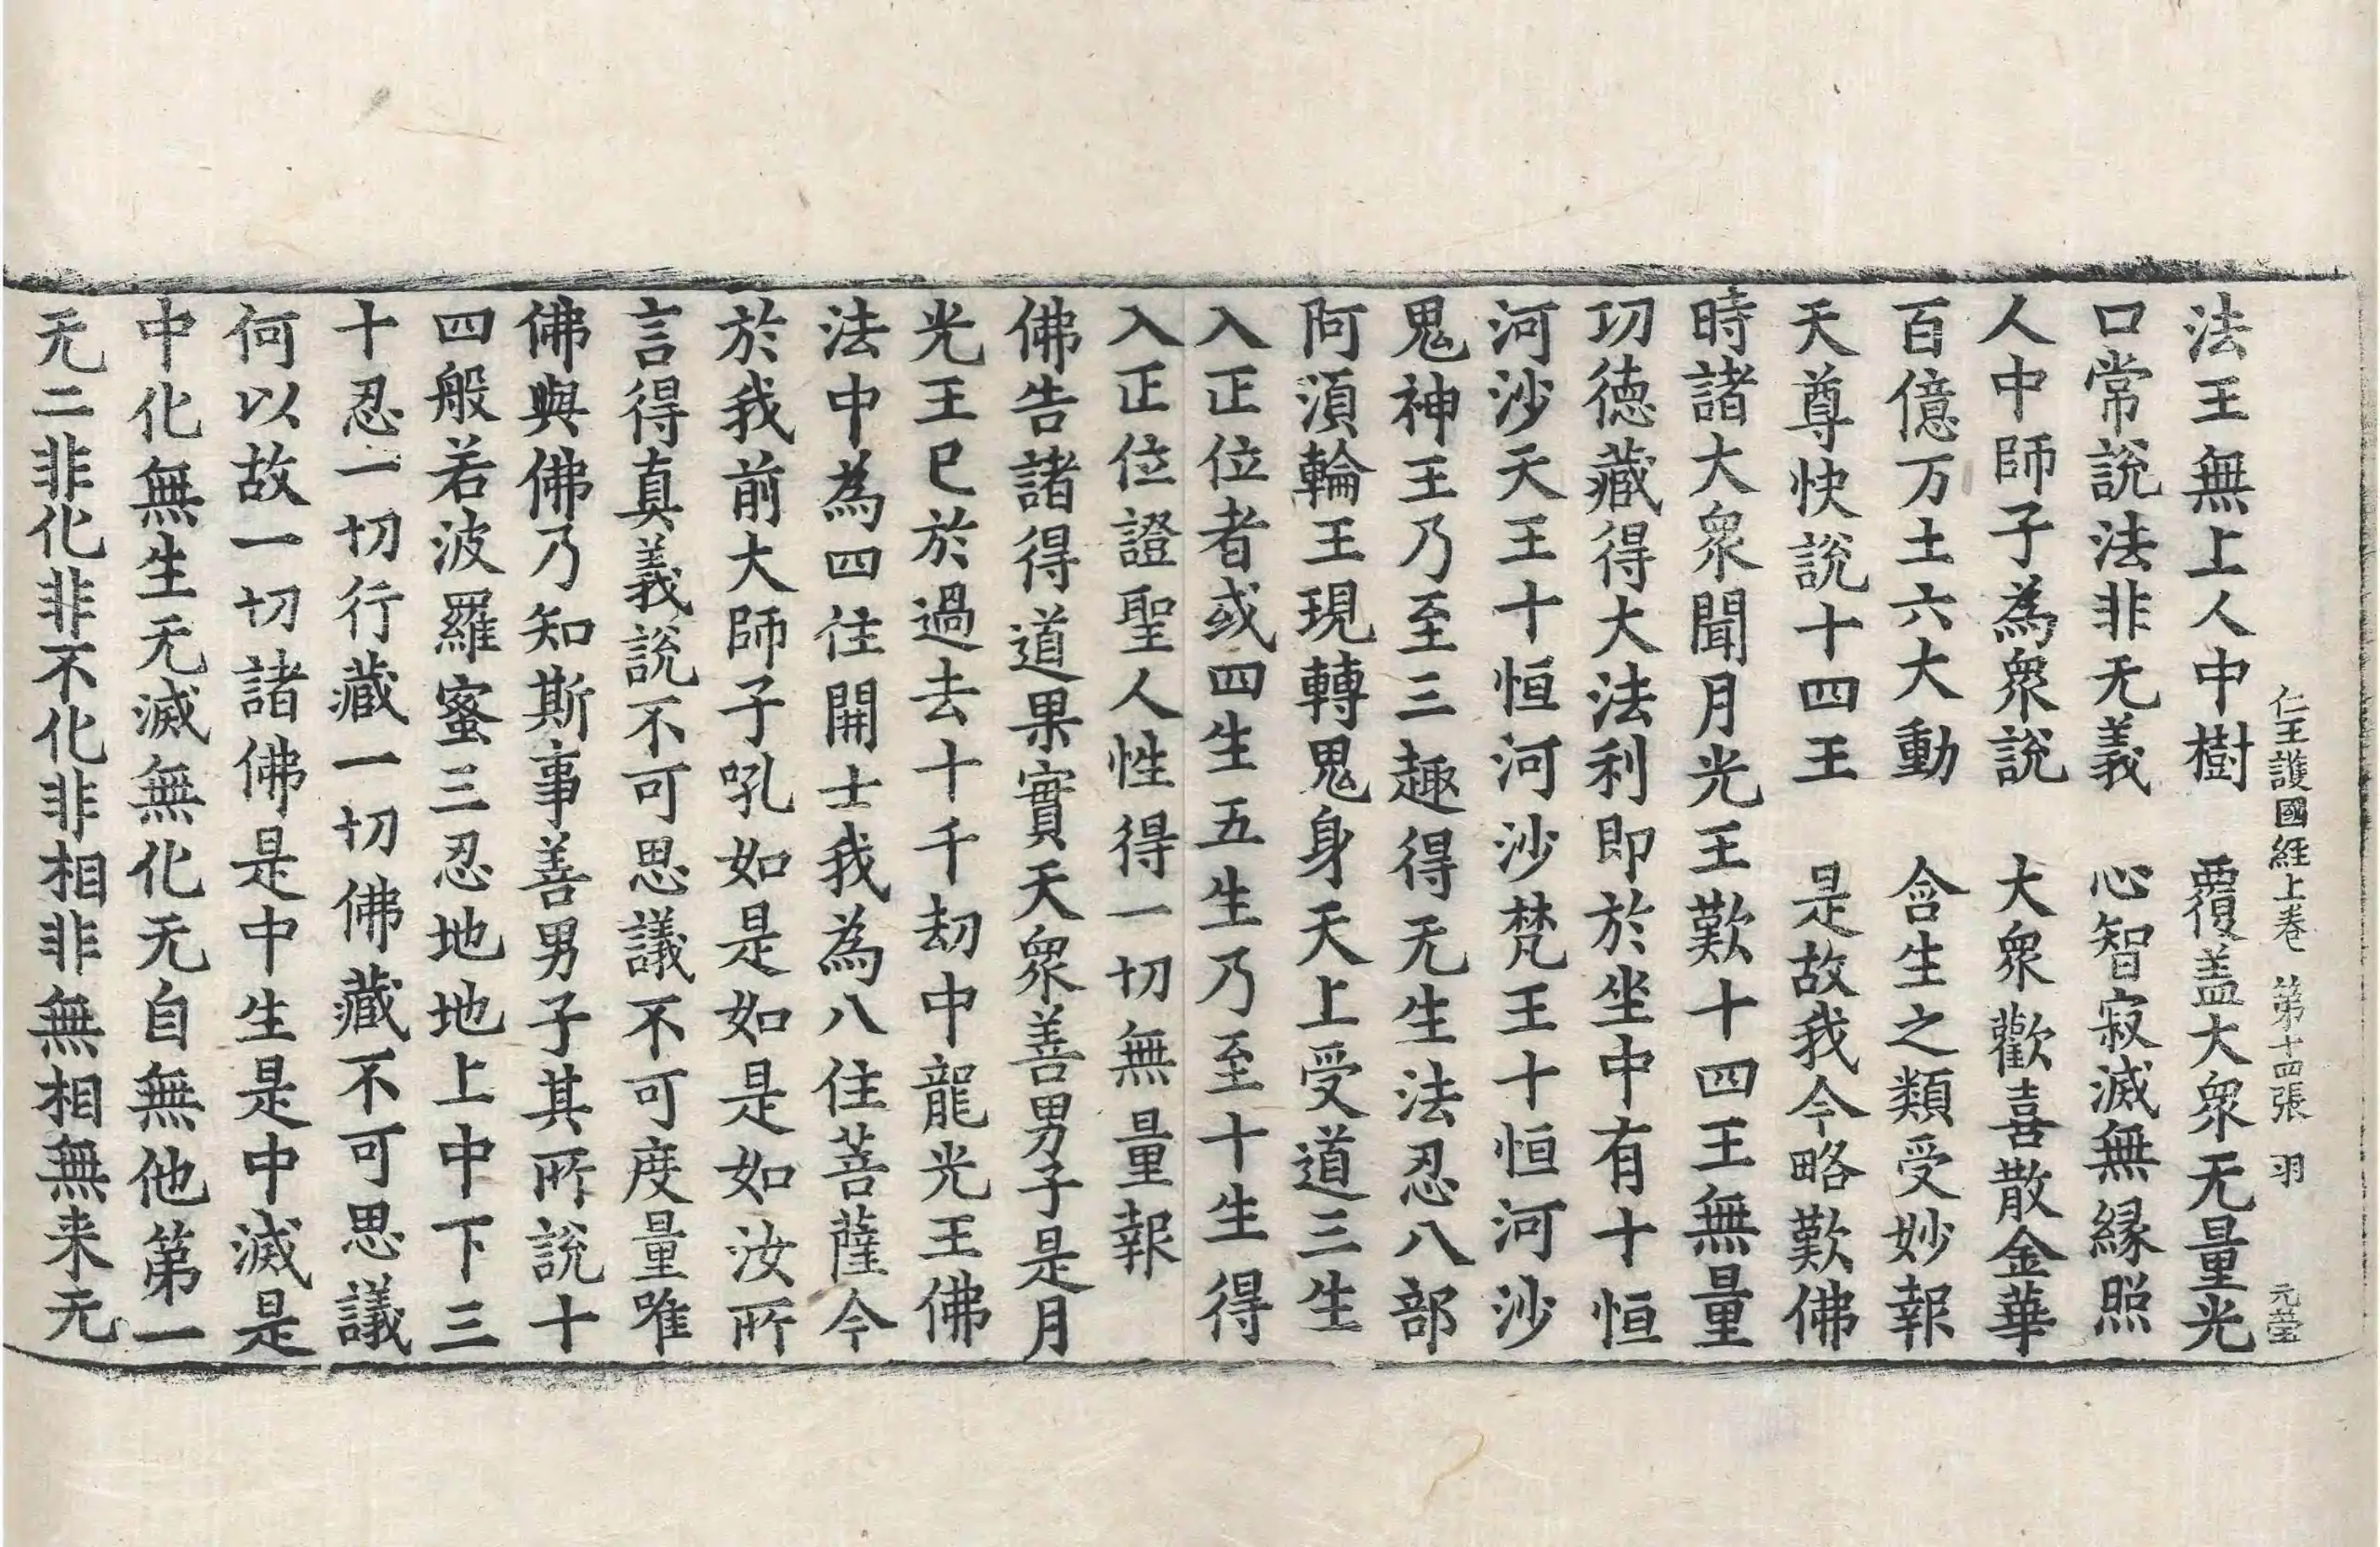 仁王護國経上卷 第十四張 羽 元瑩
法王無上人中樹 覆盖大衆无量光
口常說法非无義 心智寂滅無緣照
人中師子為衆說 大衆歡喜散金華
百億万土六大動 含生之類受妙報
天尊快說十四王 是故我今略歎佛
時諸大衆聞月光王歎十四王無量
功德藏得大法利即於坐中有十恒
河沙天王十恒河沙梵王十恒河沙
鬼神王乃至三趣得无生法忍八部
阿湏輪王現轉鬼身天上受道三生
入正位者或四生五生乃至十生得
入正位證聖人性得一切無量報
佛告諸得道果實天衆善男子是月
光王已於過去十千劫中龍光王佛
法中為四住開士我為八住菩薩今
於我前大師子吼如是如是如汝所
言得真義說不可思議不可度量唯
佛與佛乃知斯事善男子其所說十
四般若波羅蜜三忍地地上中下三
十忍一切行藏一切佛藏不可思議
何以故一切諸佛是中生是中滅是
中化無生无滅無化无自無他第一
无二非化非不化非相非無相無来无